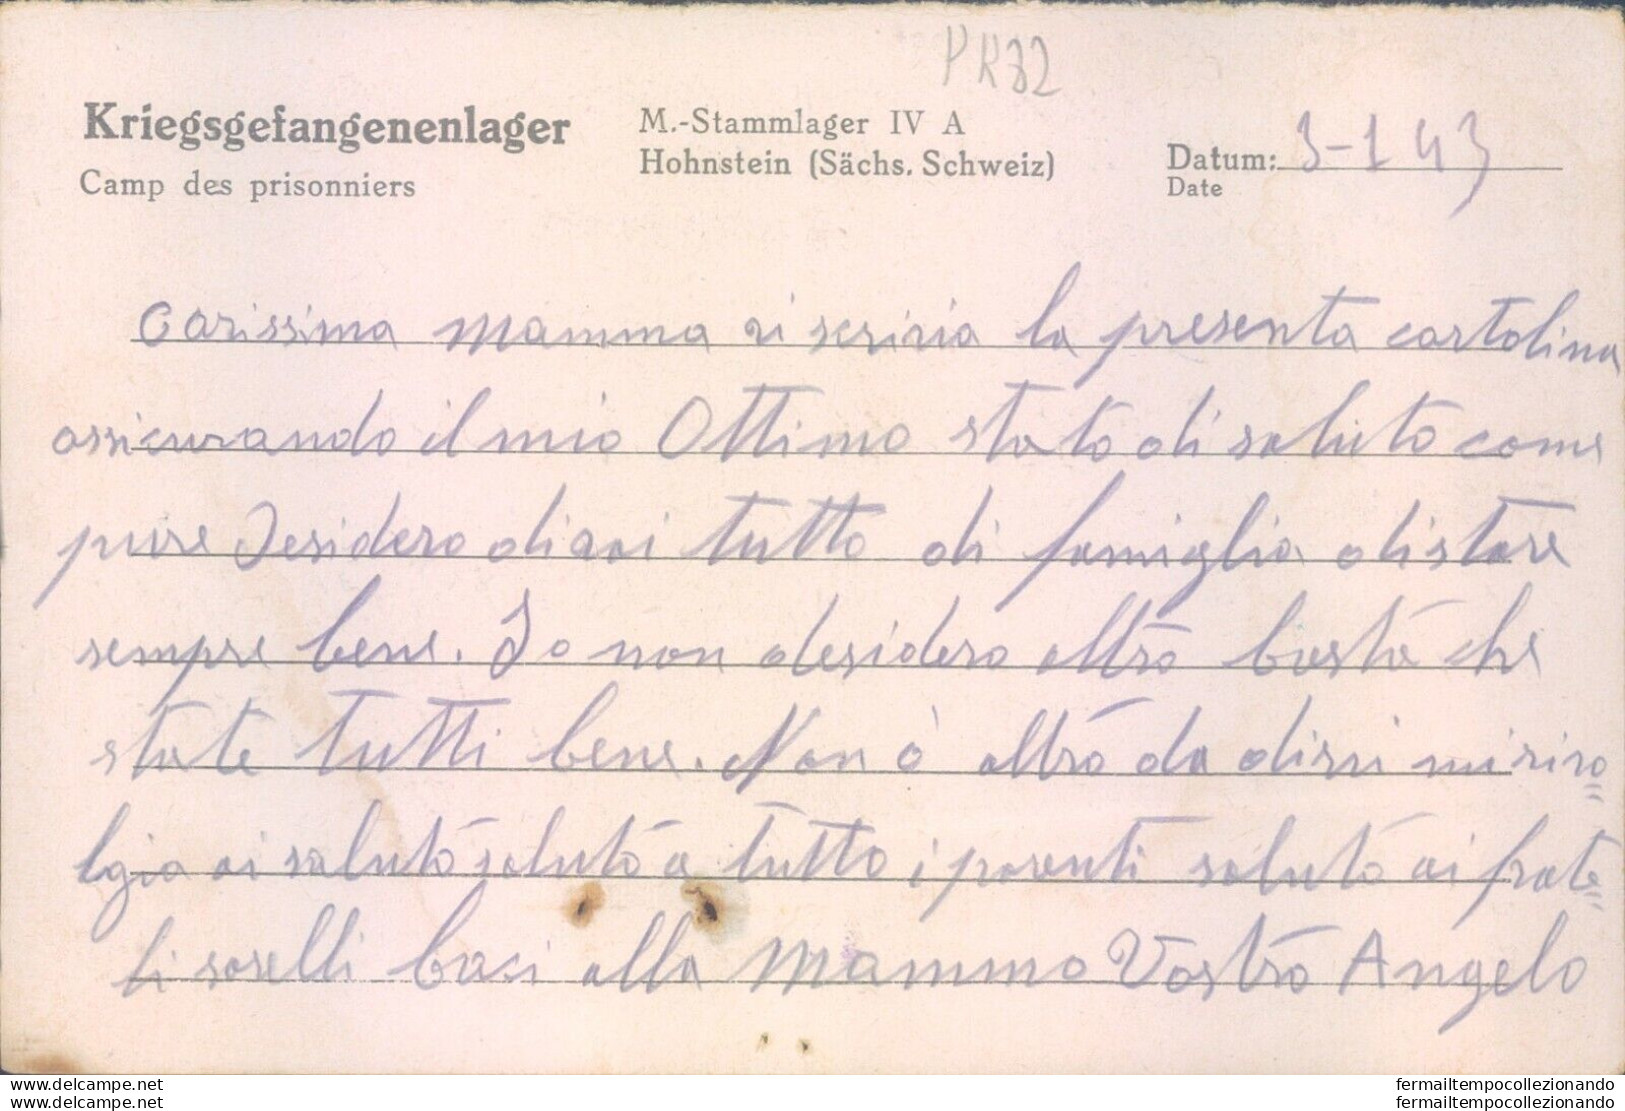 PK32
Kriegsgefangenenlager
Camp des prisonniers
M.-Stammlager IV A
Hohnstein (Sächs. Schweiz)
Datum: 3-1 43
Date
Carissima Mamma vi scrivia la presenta cartolina
assicurando il mio Ottimo stato di saluto come
pure desidero di voi tutto di famiglia di stare
sempre bene. Io non desidero altro basta che
state tutti bene. Non o altro da dirvi mi
lgia vi saluto saluto a tutto i parenti saluto ai frate=
li sorelli baci alla Mamma Vostro Angelo
www.delcampe.net
www.delcampe.net
fermailtempocollezionando
fermailtempocollezionando